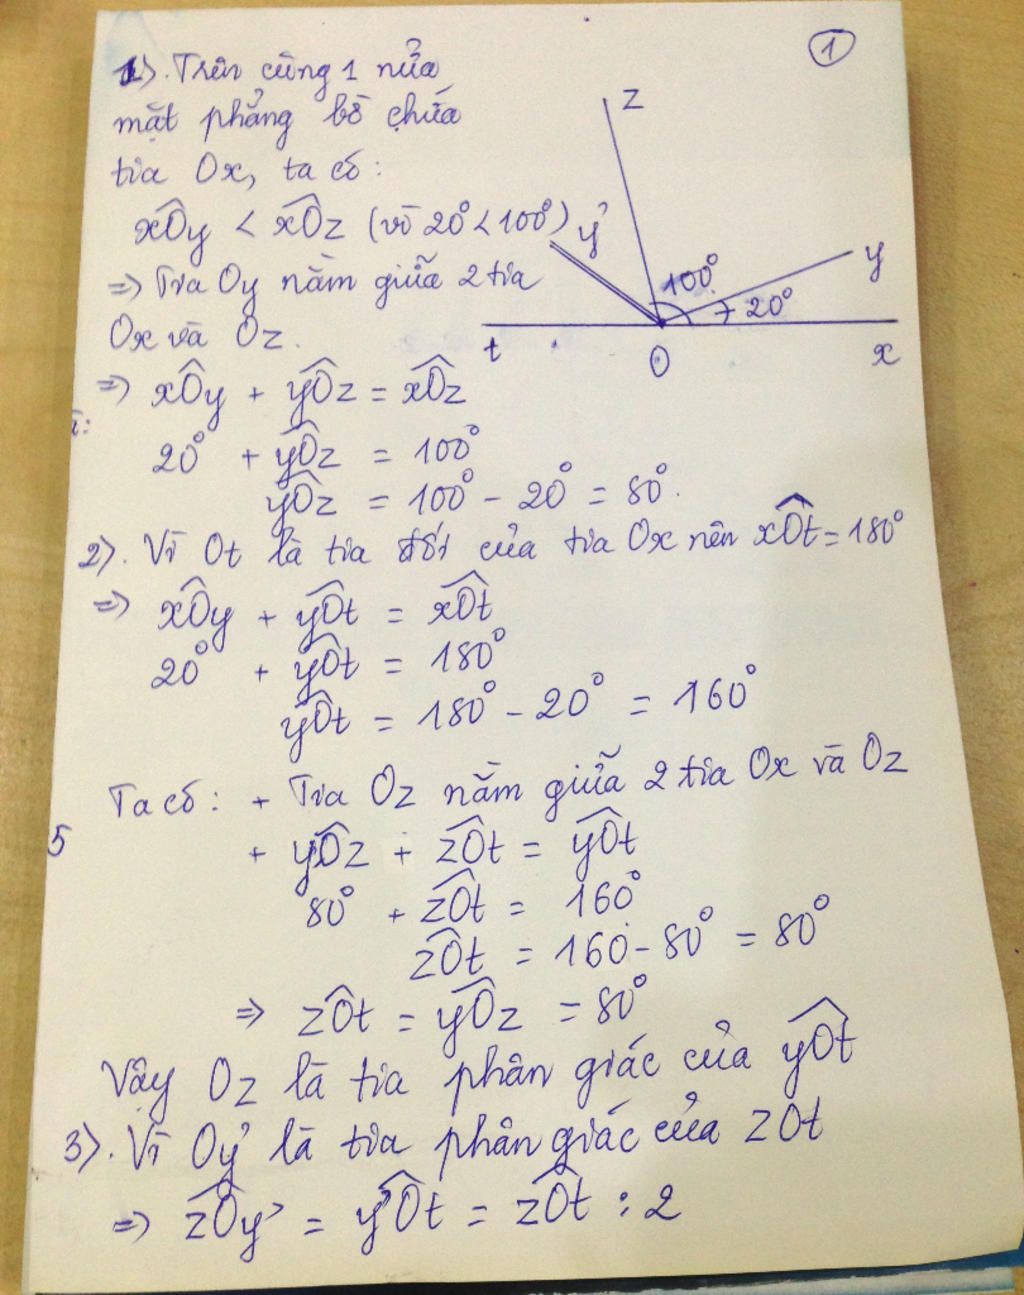 ①
1). Trên cùng 1 nửa
mặt phẳng bờ chứa
tia Ox, ta có:
xÔy < xÔz (vì 20° < 100°)
=> Tia Oy nằm giữa 2 tia
Ox và Oz.
z
y'
y
100°
20°
t
O
x
=> xÔy + yÔz = xÔz
20° + yÔz = 100°
yÔz = 100° - 20° = 80°.
2). Vì Ot là tia đối của tia Ox nên xÔt = 180°
=> xÔy + yÔt = xÔt
20° + yÔt = 180°
yÔt = 180° - 20° = 160°
Ta có: + Tia Oz nằm giữa 2 tia Ox và Oz
5
+ yÔz + zÔt = yÔt
80° + zÔt = 160°
zÔt = 160 - 80° = 80°
=> zÔt = yÔz = 80°
Vậy Oz là tia phân giác của yÔt
3). Vì Oy' là tia phân giác của zOt
=> zÔy' = y'Ôt = zÔt : 2